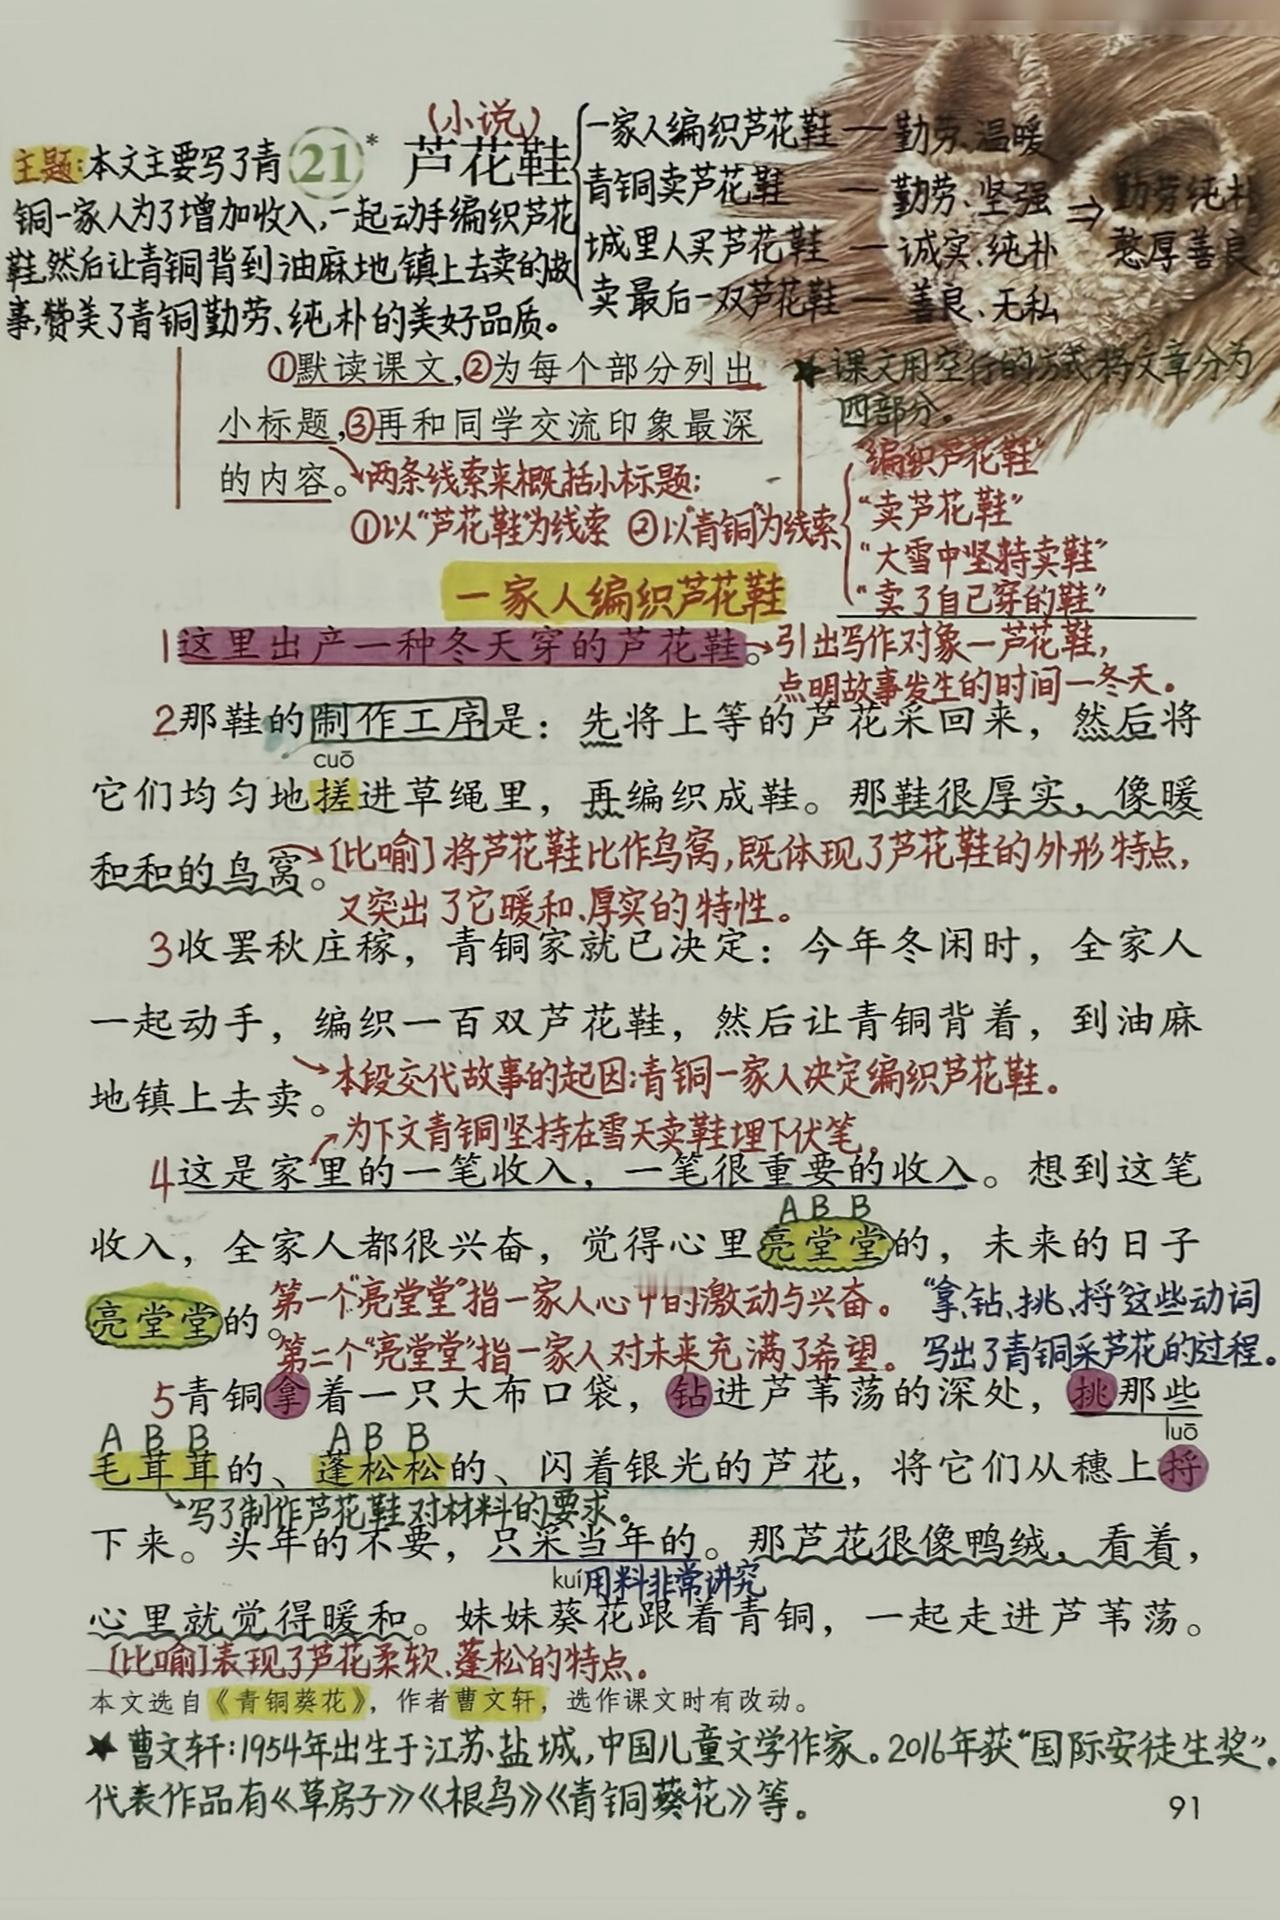 (小说)
主题:本文主要写了青
铜一家人为了增加收入,一起动手编织芦花
鞋,然后让青铜背到油麻地镇上去卖的故
事,赞美了青铜勤劳、纯朴的美好品质。
21* 芦花鞋
一家人编织芦花鞋—勤劳、温暖
青铜卖芦花鞋—勤劳、坚强
城里人买芦花鞋—诚实、纯朴
卖最后一双芦花鞋—善良、无私
⇒勤劳纯朴
憨厚善良
①默读课文,②为每个部分列出
小标题,③再和同学交流印象最深
的内容。
★课文用空行的方式将文章分为
四部分。
两条线索来概括小标题:
①以“芦花鞋”为线索 ②以“青铜”为线索
“编织芦花鞋”
“卖芦花鞋”
“大雪中坚持卖鞋”
“卖了自己穿的鞋”
一家人编织芦花鞋
1这里出产一种冬天穿的芦花鞋。
引出写作对象—芦花鞋,
点明故事发生的时间—冬天。
2那鞋的制作工序是：先将上等的芦花采回来，然后将
cuō
它们均匀地搓进草绳里，再编织成鞋。那鞋很厚实，像暖
和和的鸟窝。
[比喻]将芦花鞋比作鸟窝,既体现了芦花鞋的外形特点,
又突出了它暖和、厚实的特性。
3收罢秋庄稼，青铜家就已决定：今年冬闲时，全家人
一起动手，编织一百双芦花鞋，然后让青铜背着，到油麻
地镇上去卖。
本段交代故事的起因:青铜一家人决定编织芦花鞋。
为下文青铜坚持在雪天卖鞋埋下伏笔。
4这是家里的一笔收入，一笔很重要的收入。想到这笔
A B B
收入，全家人都很兴奋，觉得心里亮堂堂的，未来的日子
亮堂堂的。
第一个“亮堂堂”指一家人心中的激动与兴奋。
第二个“亮堂堂”指一家人对未来充满了希望。
“拿、钻、挑、捋”这些动词
写出了青铜采芦花的过程。
5青铜拿着一只大布口袋，钻进芦苇荡的深处，挑那些
A B B A B B
luō
毛茸茸的、蓬松松的、闪着银光的芦花，将它们从穗上捋
写了制作芦花鞋对材料的要求。
下来。头年的不要，只采当年的。那芦花很像鸭绒，看着，
kuí
用料非常讲究
心里就觉得暖和。妹妹葵花跟着青铜，一起走进芦苇荡。
[比喻]表现了芦花柔软、蓬松的特点。
本文选自《青铜葵花》，作者曹文轩，选作课文时有改动。
★曹文轩:1954年出生于江苏盐城,中国儿童文学作家。2016年获“国际安徒生奖”。
代表作品有《草房子》《根鸟》《青铜葵花》等。
91